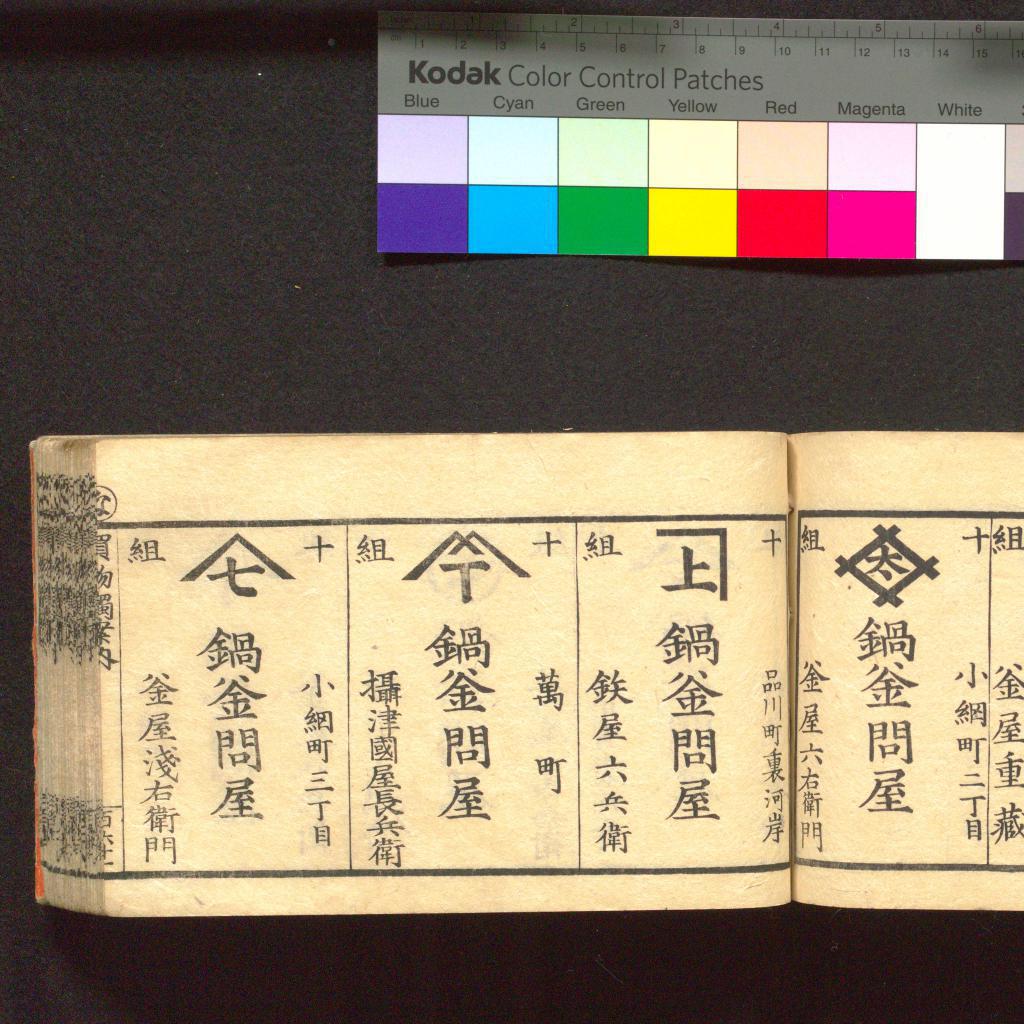 Kodak Color Control Patches
Blue Cyan Green Yellow Red Magenta White
組
釜屋重藏
十
小網町二丁目
大
鍋釜問屋
組
釜屋六右衛門
十
品川町裏河岸
上
鍋釜問屋
組
鉃屋六兵衛
十
萬町
丁
鍋釜問屋
組
攝津國屋長兵衛
十
小網町三丁目
七
鍋釜問屋
組
釜屋淺右衛門
な
買物獨案内